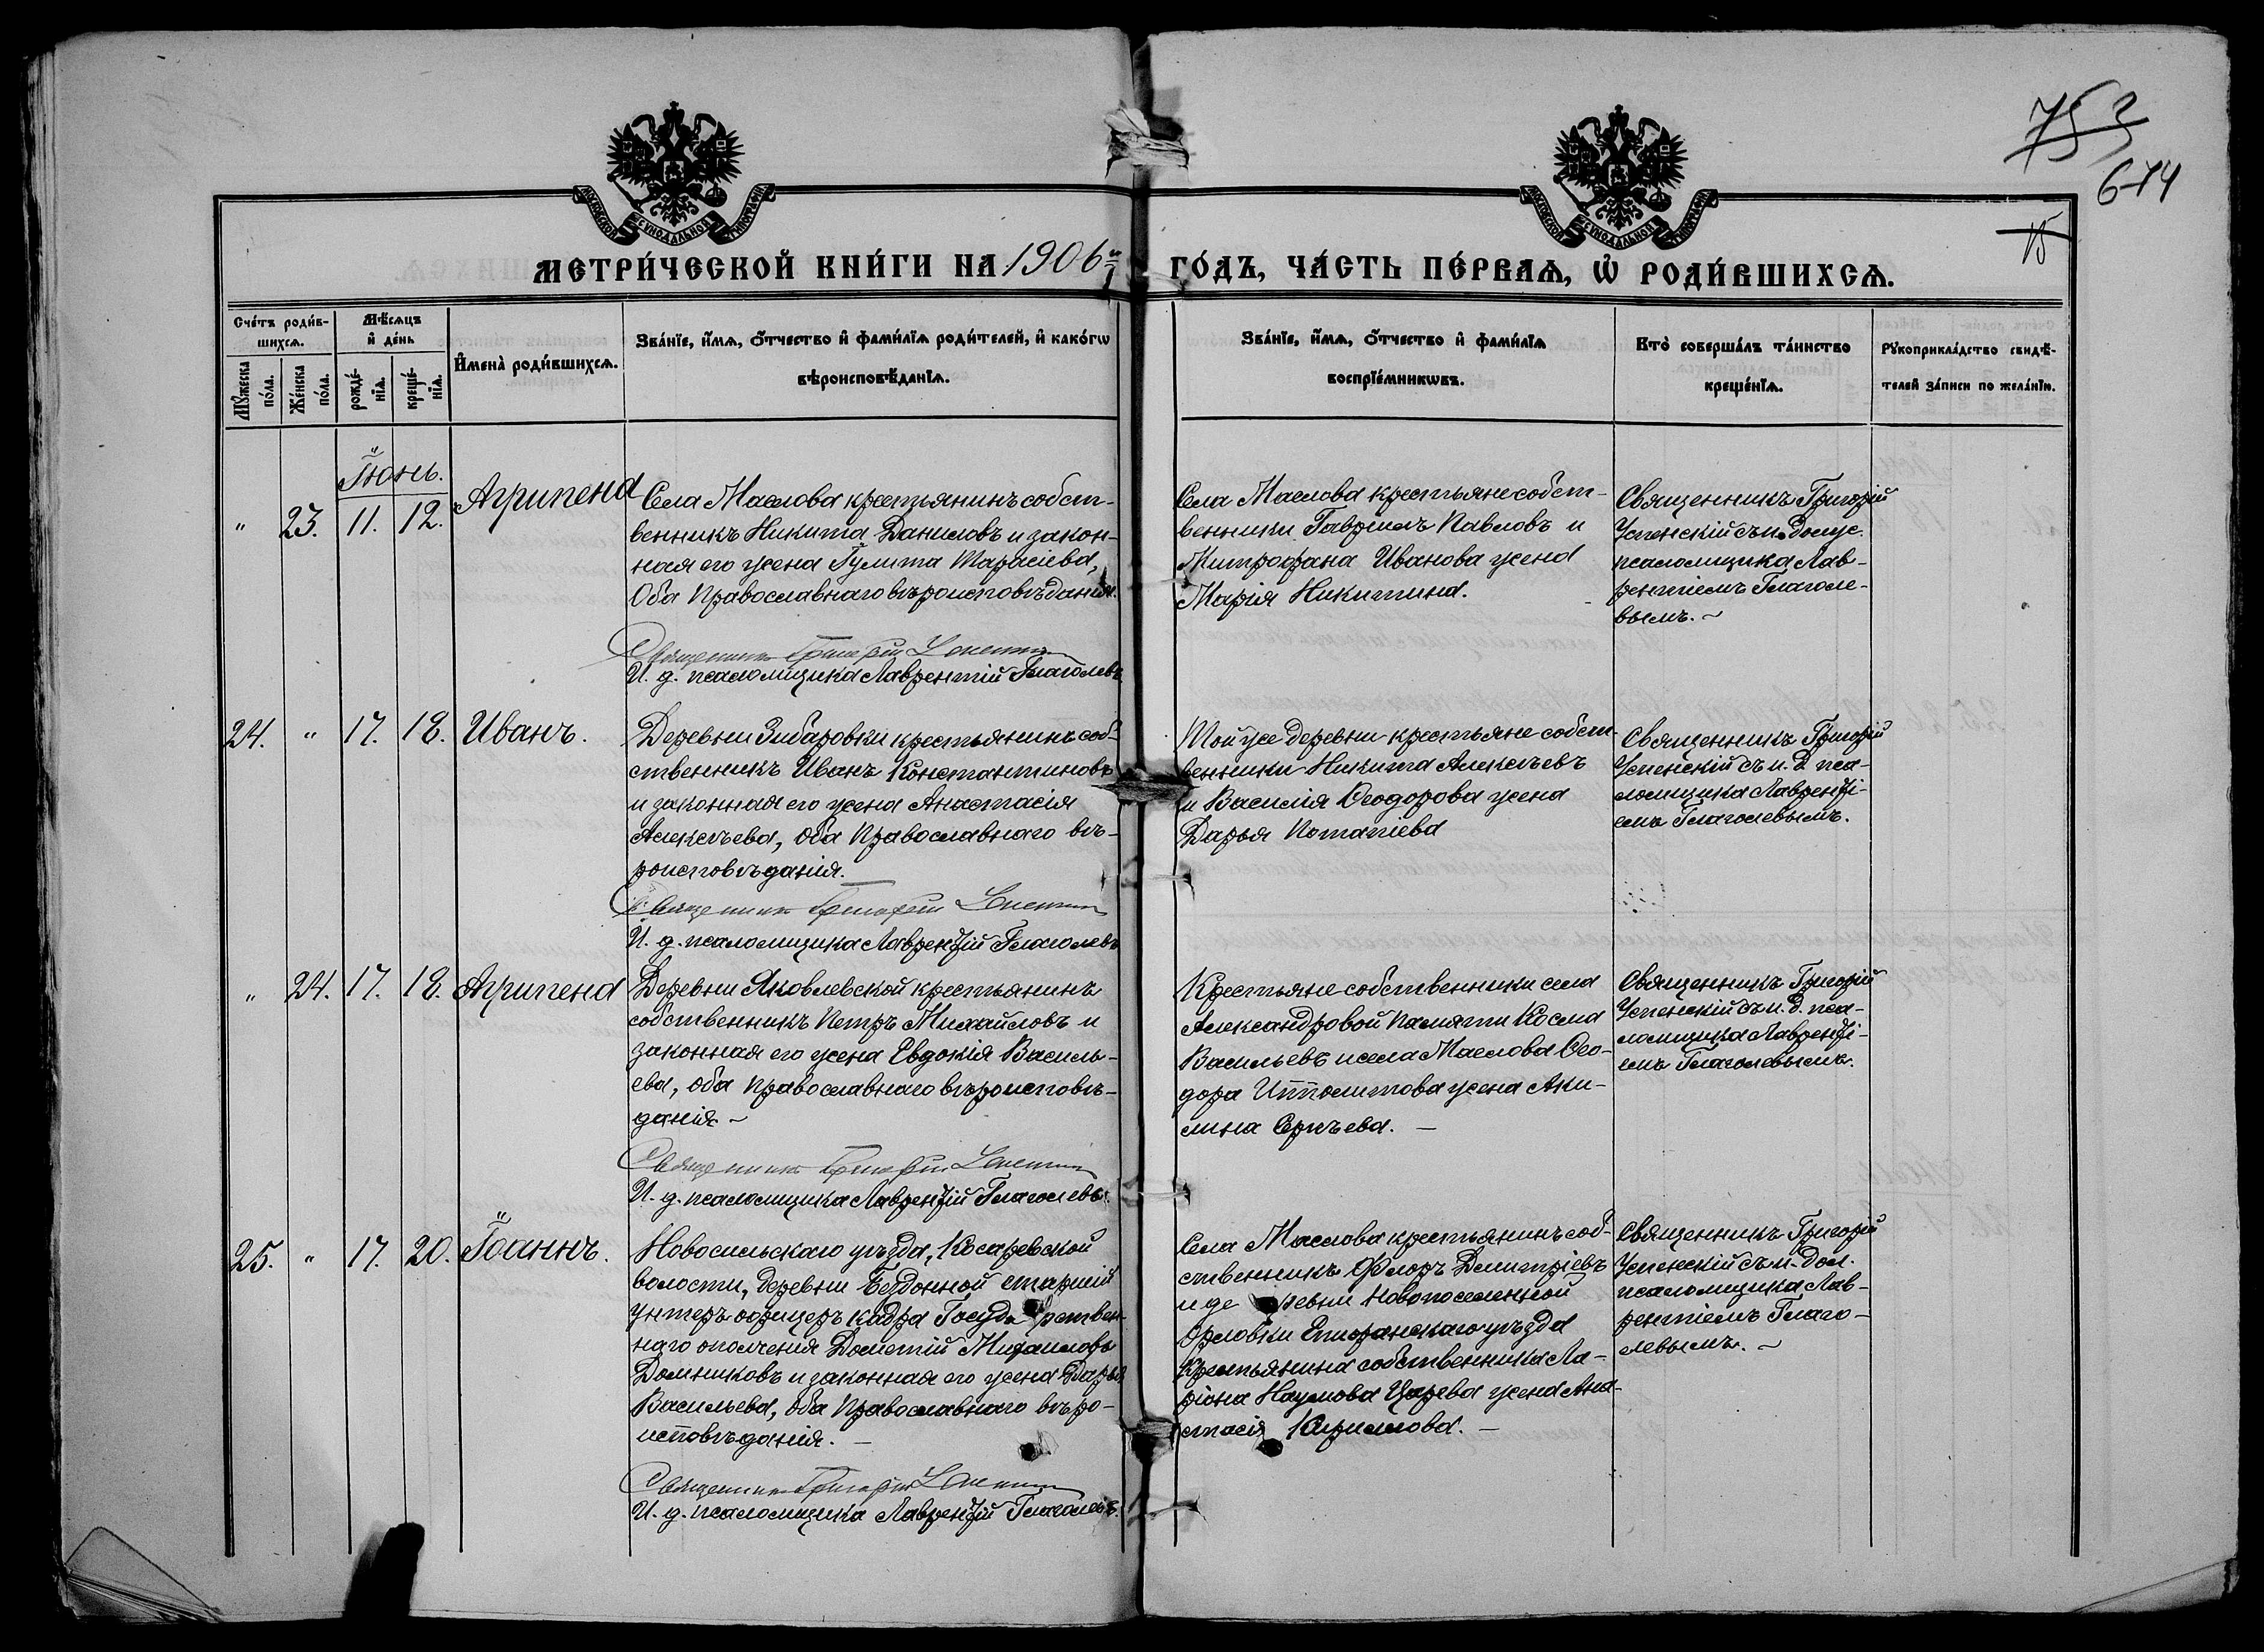 753
614
15
МОСКОВСКОЙ СѴНОДАЛЬНОЙ ТИПОГРАФІИ
МОСКОВСКОЙ СѴНОДАЛЬНОЙ ТИПОГРАФІИ
МЕТРИ́ЧЕСКОЙ КНИ́ГИ НА 1906й ГО́ДЪ, ЧА́СТЬ ПЕ́РВАѦ, Ѽ РОДИ́ВШИХСѦ.
Сче́тъ роди́в-
шихсѧ.
Мꙋ́жеска по́ла.
Же́нска по́ла.
Мѣ́сѧцъ
и҆ де́нь
рожде́-
нїѧ.
креще́-
нїѧ.
И҆мена̀ роди́вшихсѧ.
Зва́нїе, и҆́мѧ, ѻ҆́тчество и҆ фами́лїѧ роди́телей, и҆ како́гѡ
вѣроисповѣ́данїѧ.
Зва́нїе, и҆́мѧ, ѻ҆́тчество и҆ фами́лїѧ
воспрїе́мникѡвъ.
Кто̀ соверша́лъ та́инство
креще́нїѧ.
Рꙋкоприкла́дство свидѣ́-
телей за́писи по жела́нїю.
Іюнь.
" 23. 11. 12. Агрипена
Села Маслова крестьянинъ собст-
венникъ Никита Даниловъ и закон-
ная его жена Іулита Тарасіева,
Оба Православнаго вѣроисповѣданія.
Священникъ Григорій Успенскій
И. д. псаломщика Лаврентій Глаголевъ
Села Маслова крестьяне собст-
венники Гавріилъ Павловъ и
Митрофана Иванова жена
Марія Никитина.
Священникъ Григорій
Успенскій съ и. долж.
псаломщика Лав-
рентіемъ Глаголе-
вымъ.
24. " 17. 18. Иванъ.
Деревни Зибаровки крестьянинъ соб-
ственникъ Иванъ Константиновъ
и законная его жена Анастасія
Алексѣева, оба Православнаго вѣ-
роисповѣданія.
Священникъ Григорій Успенскій
И. д. псаломщика Лаврентій Глаголевъ
Той же деревни крестьяне собст-
венники Никита Алексѣевъ
и Василія Ѳеодорова жена
Дарья Потапіева
Священникъ Григорій
Успенскій съ и. д. пса-
ломщика Лавренті-
емъ Глаголевымъ.
" 24. 17. 18. Агрипена
Деревни Яковлевской крестьянинъ
собственникъ Петръ Михайловъ и
законная его жена Евдокія Василь-
ева, оба Православнаго вѣроисповѣ-
данія
Священникъ Григорій Успенскій
И. д. псаломщика Лаврентій Глаголевъ.
Крестьяне собственники села
Александровой Памяти Косма
Васильевъ и села Маслова Ѳео-
дора Ипполитова жена Аки-
лина Сергѣева.
Священникъ Григорій
Успенскій съ и. д. пса-
ломщика Лавренті-
емъ Глаголевымъ.
25. " 17. 20. Іоаннъ.
Новосильскаго уѣзда, Косаревской
волости, деревни Бездонной старшій
унтеръ офицеръ кадра Государствен-
наго ополченія Дометій Михаиловъ
Домниковъ и законная его жена Дарья
Васильева, оба Православнаго вѣро-
исповѣданія.
Священникъ Григорій Успенскій
И. д. псаломщика Лаврентій Глаголевъ.
Села Маслова крестьянинъ соб-
ственникъ Флоръ Димитріевъ
и деревни Новопоселенной
Орловки Епифанскаго уѣзда
крестьянина собственника Ла-
ріона Наумова Царева жена Ана-
стасія Кириллова.
Священникъ Григорій
Успенскій съ и. дол.
псаломщика Лав-
рентіемъ Глаго-
левымъ.